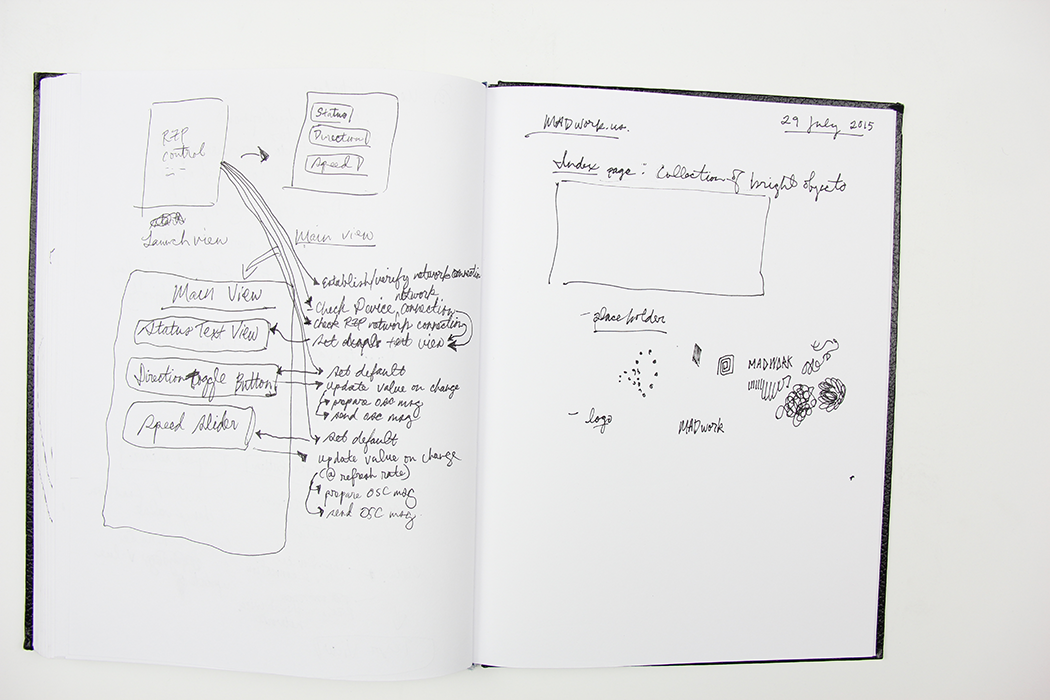 Control
Status
Direction
Speed
Launch view
Main view
Main View
Status Text View
Direction toggle Button
Speed Slider
Establish/verify network connection
network
check Device connection
check network connection
set text view
set default
update value on change
prepare OSC msg
send OSC msg
set default
update value on change
(@ refresh rate)
prepare OSC msg
send OSC msg
MADWork.us.
29 July 2015
Index page: Collection of bright objects
- placeholder
MADWORK
- logo
MADWork